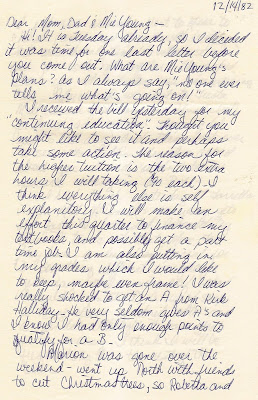 12/14/82
Dear Mom, Dad & Mie Young—
Hi! It is Tuesday already, so I decided
it was time for one last letter before
you come out. What are Mie Young's
plans? As I always say, "no one ever
tells me what's going on!"
I received the bill yesterday for my
"continuing education". Thought you
might like to see it and perhaps
take some action. The reason for
the higher tuition is the two extra
hours I will taking (90 each). I
think everything else is self
explanitory. I will make an
effort this quarter to finance my
textbooks and possibly get a part
time job. I am also putting in
my grades which I would like
to keep, maybe even frame! I was
really shocked to get an A from Kirk
Halliday. He very seldom gives A's and
I know I had only enough points to
qualify for a B.
Marion was gone over the
weekend - went up North with friends
to cut Christmas trees, so Robetta and